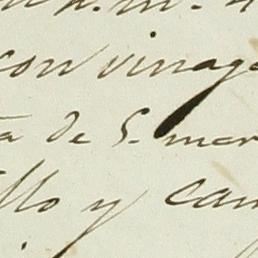 con vinag
a de S. mer
llo y can